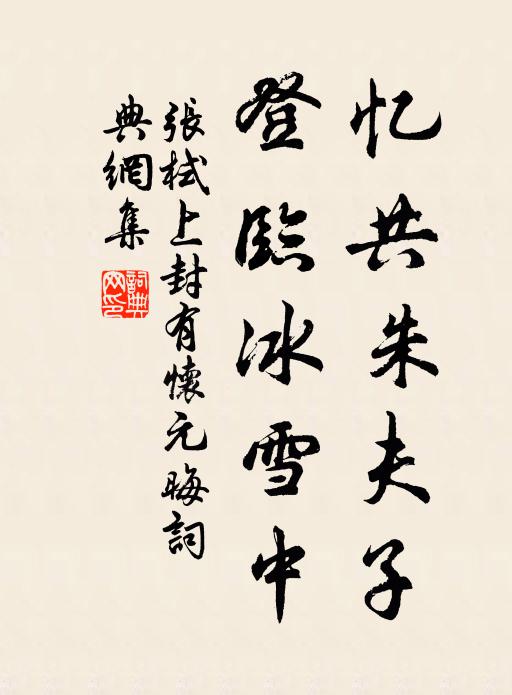 忆共朱夫子
登臨冰雪中
張栻上封有懷元晦詞
典網集
詞典網印